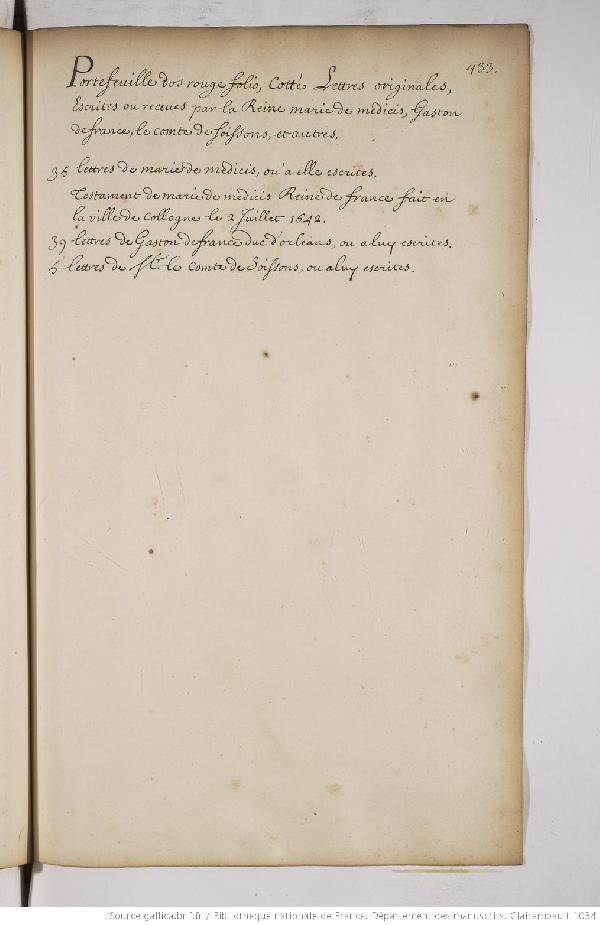 433.
Portefeuille dos rouge folio, Cotté Lettres originales,
Escrites ou receues par la Reine marie de medicis, Gaston
de france, le comte de soissons, et autres.
35 lettres de marie de medicis, ou a elle escrites.
Testament de marie de medicis Reine de france fait en
la ville de Collogne le 2 Juillet 1642.
39 lettres de Gaston de france duc d'orleans, ou a luy escrites.
5 lettres de Mr. le Comte de Soissons, ou a luy escrites.
Source gallica.bnf.fr / Bibliothèque nationale de France. Département des manuscrits. Clairambault 1034